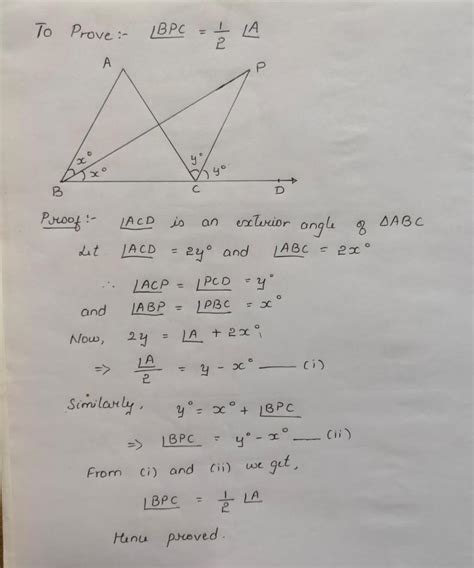 To Prove:- ∠BPC = 1/2 ∠A
A
P
x°
x°
y°
y°
B
C
D
Proof:- ∠ACD is an exterior angle of ΔABC
Let ∠ACD = 2y° and ∠ABC = 2x°
∴ ∠ACP = ∠PCD = y°
and ∠ABP = ∠PBC = x°
Now, 2y = ∠A + 2x°;
=> ∠A/2 = y - x° — (i)
Similarly, y° = x° + ∠BPC
=> ∠BPC = y° - x° — (ii)
From (i) and (ii) we get,
∠BPC = 1/2 ∠A
Hence proved.